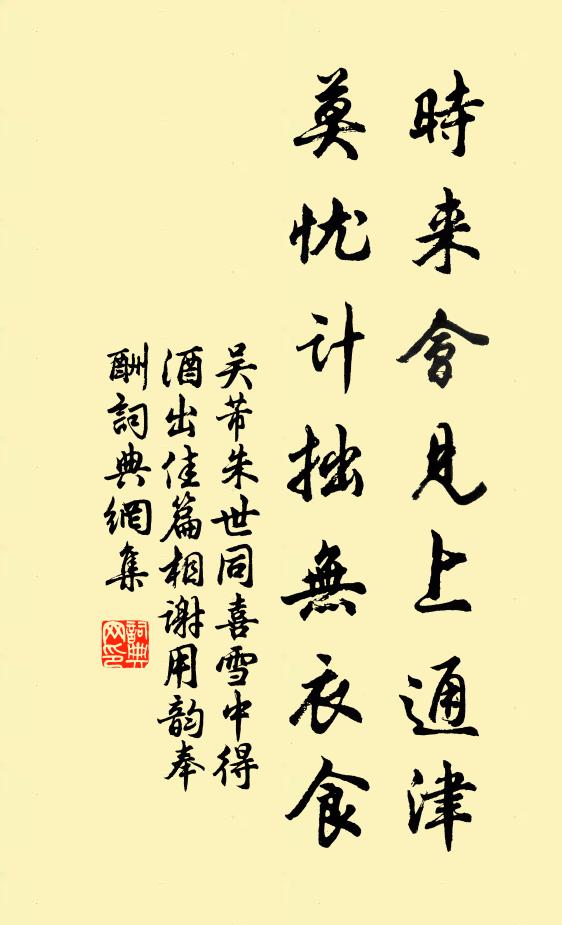 時来會見上通津
莫忧计拙無衣食
吴芾朱世同喜雪中得
酒出佳篇相谢用韵奉
酬詞典網集
詞典
网印